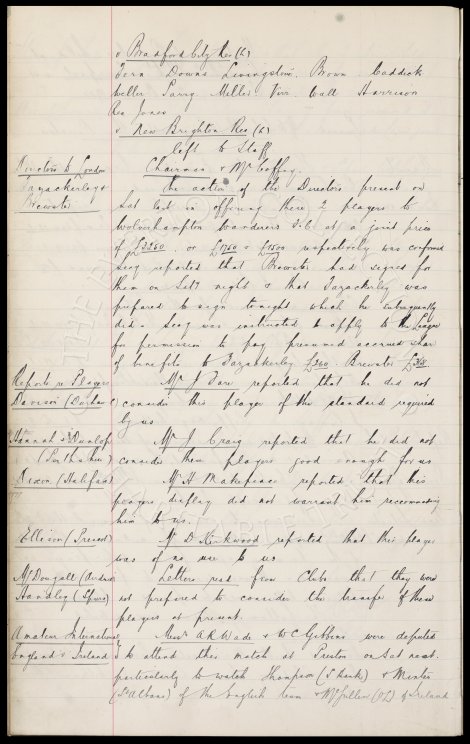 v Bradford City Res (h)
Fern Downs Livingstone Brown Caddick
Weller Parry Miller Virr Wall Harrison
Res Jones
v New Brighton Res (h)
left to Staff
Chairman & Mr Coffey.
Directors to London
Tazackerley &
Brewster
The action of the Directors present on
Sat last in offering these 2 players to
Wolverhampton Wanderers F.C at a joint price
of £3250 or £1750 & £1500 respectively was confirmed
Secy reported that Brewster had signed for
them on Satdy night & that Tazackerley was
prepared to sign tonight which he subsequently
did & Secy was instructed to apply to the League
for permission to pay presumed accrued share
of benefits to Tazackerley £360 Brewster
Reports re Players
Davison (Durham C)
Mr J Fare reported that he did not
consider this player of the standard required
by us
Hannah & Dunlop
(Perthshire)
Mr J Craig reported that he did not
consider these players good enough for us
Dixon (Halifax)
Mr H Makepeace reported that this
players display did not warrant him recommending
him to us.
Ellison (Prescot)
Mr D Kirkwood reported that this player
was of no use to us
McDougall (Airdrie)
Handley (Spurs)
Letters read from Clubs that they were
not prepared to consider the transfer of these
players at present.
Amateur International
England v Ireland
Messrs A R Wade & W C Gibbins were deputed
to attend this match at Preston on Sat next.
particularly to watch Thompson & Minter
(St Albans) of the English team & of Ireland